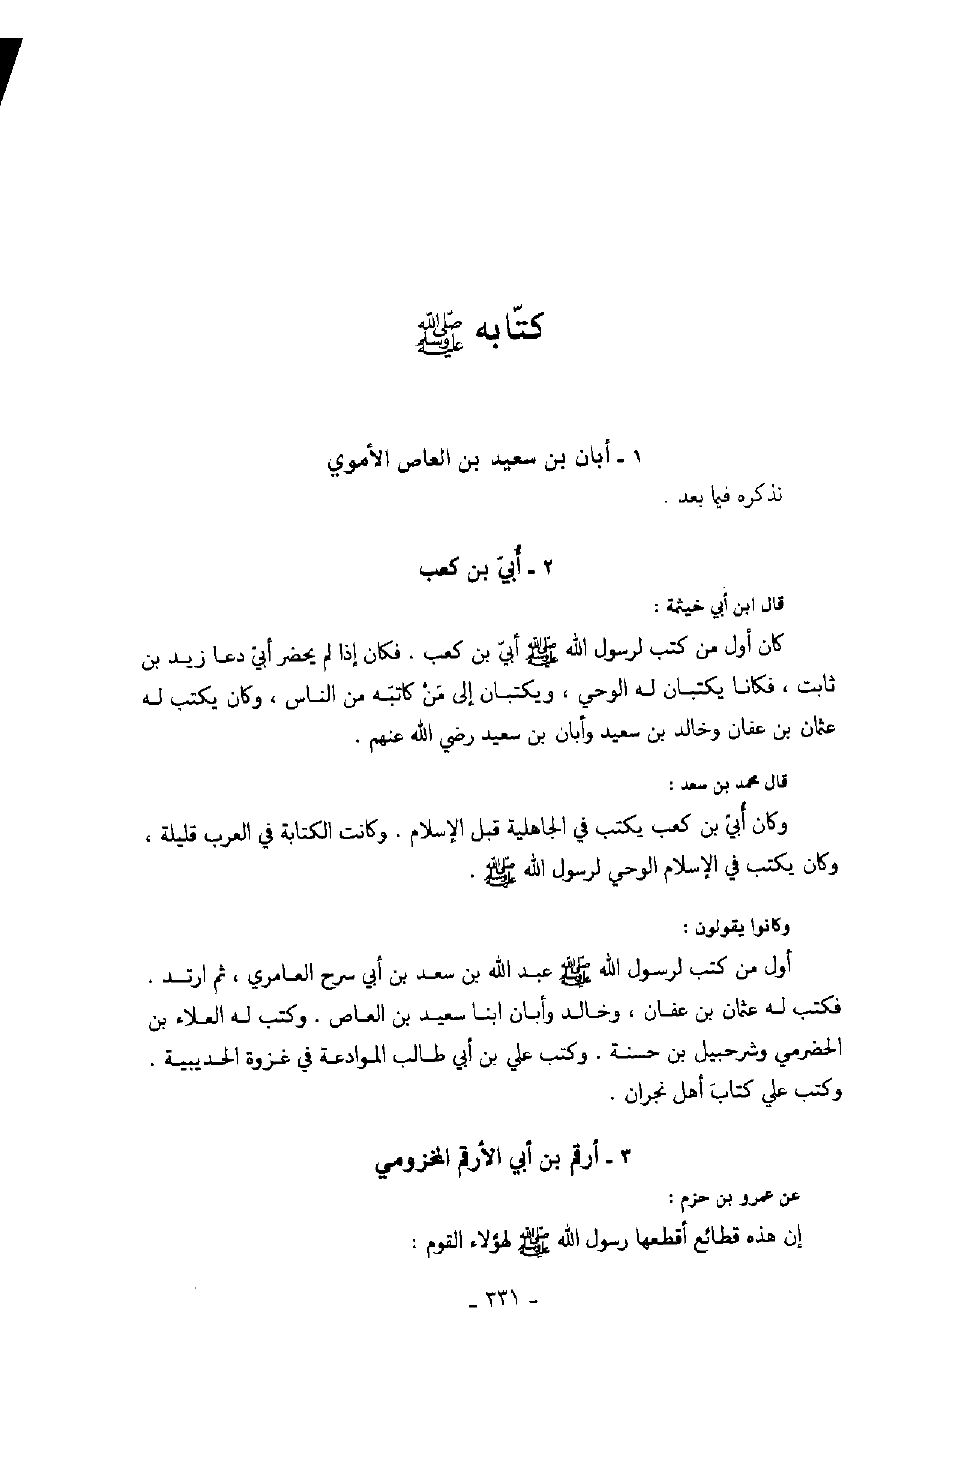 كتّابه ﷺ
١ ـ أبان بن سعيد بن العاص الأموي
نذكره فيما بعد .
٢ ـ أُبيّ بن كعب
قال ابن أبي خيثمة :
كان أول من كتب لرسول الله ﷺ أبيّ بن كعب . فكان إذا لم يحضر أبيّ دعا زيد بن
ثابت ، فكانا يكتبان له الوحي ، ويكتبان إلى مَنْ كاتبَه من الناس ، وكان يكتب له
عثمان بن عفان وخالد بن سعيد وأبان بن سعيد رضي الله عنهم .
قال محمد بن سعد :
وكان أُبيّ بن كعب يكتب في الجاهلية قبل الإسلام . وكانت الكتابة في العرب قليلة ،
وكان يكتب في الإسلام الوحي لرسول الله ﷺ .
وكانوا يقولون :
أول من كتب لرسول الله ﷺ عبد الله بن سعد بن أبي سرح العامري ، ثم ارتد .
فكتب له عثمان بن عفان ، وخالد وأبان ابنا سعيد بن العاص . وكتب له العلاء بن
الحضرمي وشرحبيل بن حسنة . وكتب علي بن أبي طالب الموادعة في غزوة الحديبية .
وكتب علي كتابَ أهل نجران .
٣ ـ أرقم بن أبي الأرقم المخزومي
عن عمرو بن حزم :
إن هذه قطائع أقطعها رسول الله ﷺ لهؤلاء القوم :
ـ ٣٣١ ـ